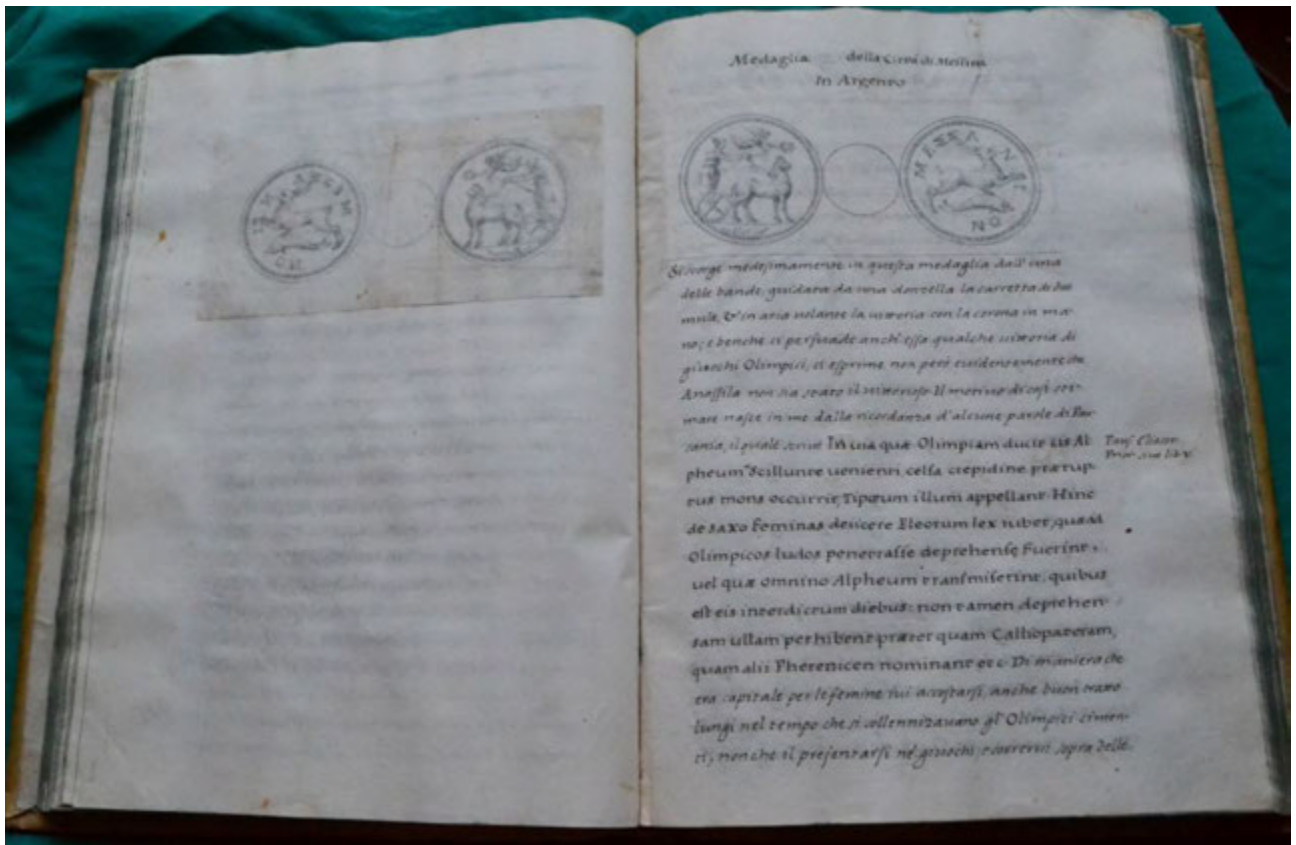 Medaglia della Città di Messina
In Argento
MESSA NI ON
Si scorge medesimamente in questa medaglia dall' una
delle bande, guidata da una donzella la carretta di due
mule, & in aria volante la vittoria con la corona in ma-
no; e benche ci persuade anch' essa qualche uittoria di
giuochi Olimpici, ci esprime non però euidentemente che
Anassila non sia stato il uittorioso. Il motiuo di cosi sti-
mare nasce in me dalla ricordanza d'alcune parole di Pau-
sania, il quale scriue In uia quæ Olimpiam ducit cis Al
pheum Scillunte uenienti, celsa crepidine prærup-
tus mons occurrit, Tipæum illum appellant. Hinc
de saxo Feminas deiicere Eleorum lex iubet, quæ ad
Olimpicos ludos penetrasse deprehensę Fuerint,
uel quæ omnino Alpheum transmiserint, quibus
est eis interdictum diebus: non tamen deprehen-
sam ullam perhibent præter quam Callipateram,
quam alii Pherenicen nominant et c. Di maniera che
era capitale per le femine iui accostarsi, anche buon tratto
lungi nel tempo che si sollennizauano gl' Olimpici cimen-
ti, nonche il presentarsi nè giuochi, e correrui sopra delle
Paus. Eliacor.
Prior. siue lib. v.